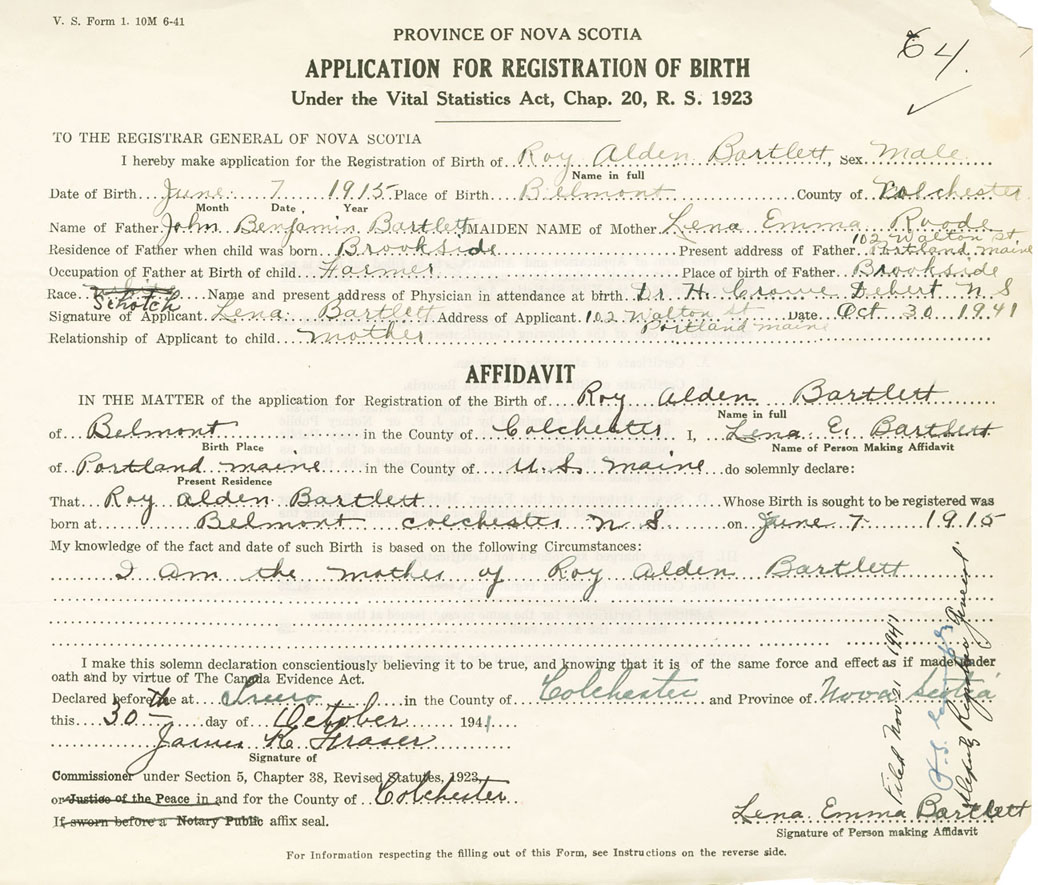 V. S. Form 1. 10M 6-41
PROVINCE OF NOVA SCOTIA
64.
APPLICATION FOR REGISTRATION OF BIRTH
Under the Vital Statistics Act, Chap. 20, R. S. 1923
TO THE REGISTRAR GENERAL OF NOVA SCOTIA
I hereby make application for the Registration of Birth of Roy Alden Bartlett, Sex Male
Name in full
Date of Birth June 7 1915 Place of Birth Belmont County of Colchester
Month Date Year
Name of Father John Benjamin Bartlett MAIDEN NAME of Mother Lena Emma Roode
102 Walton st
Residence of Father when child was born Brookside Present address of Father Portland maine
Occupation of Father at Birth of child Farmer Place of birth of Father Brookside
Race Name and present address of Physician in attendance at birth Dr H. Crowe Debert N S
Schotch
Signature of Applicant Lena Bartlett Address of Applicant 102 Walton st Date Oct 30 1941
Portland maine
Relationship of Applicant to child mother
AFFIDAVIT
IN THE MATTER of the application for Registration of the Birth of Roy Alden Bartlett
Name in full
of Belmont in the County of Colchester I, Lena E. Bartlett
Birth Place Name of Person Making Affidavit
of Portland maine in the County of U.S. maine do solemnly declare:
Present Residence
That Roy Alden Bartlett Whose Birth is sought to be registered was
born at Belmont Colchester N S on June 7 1915
My knowledge of the fact and date of such Birth is based on the following Circumstances:
I Am the mother of Roy Alden Bartlett
I make this solemn declaration conscientiously believing it to be true, and knowing that it is of the same force and effect as if made under
oath and by virtue of The Canada Evidence Act.
Declared before me at Truro in the County of Colchester and Province of Nova Scotia
this 30 day of October 1941
James K. Fraser
Signature of
Commissioner under Section 5, Chapter 38, Revised Statutes, 1923,
or Justice of the Peace in and for the County of Colchester
If sworn before a Notary Public affix seal.
Filed Nov 21 1941
Deputy Registrar General.
Lena Emma Bartlett
Signature of Person making Affidavit
For Information respecting the filling out of this Form, see Instructions on the reverse side.